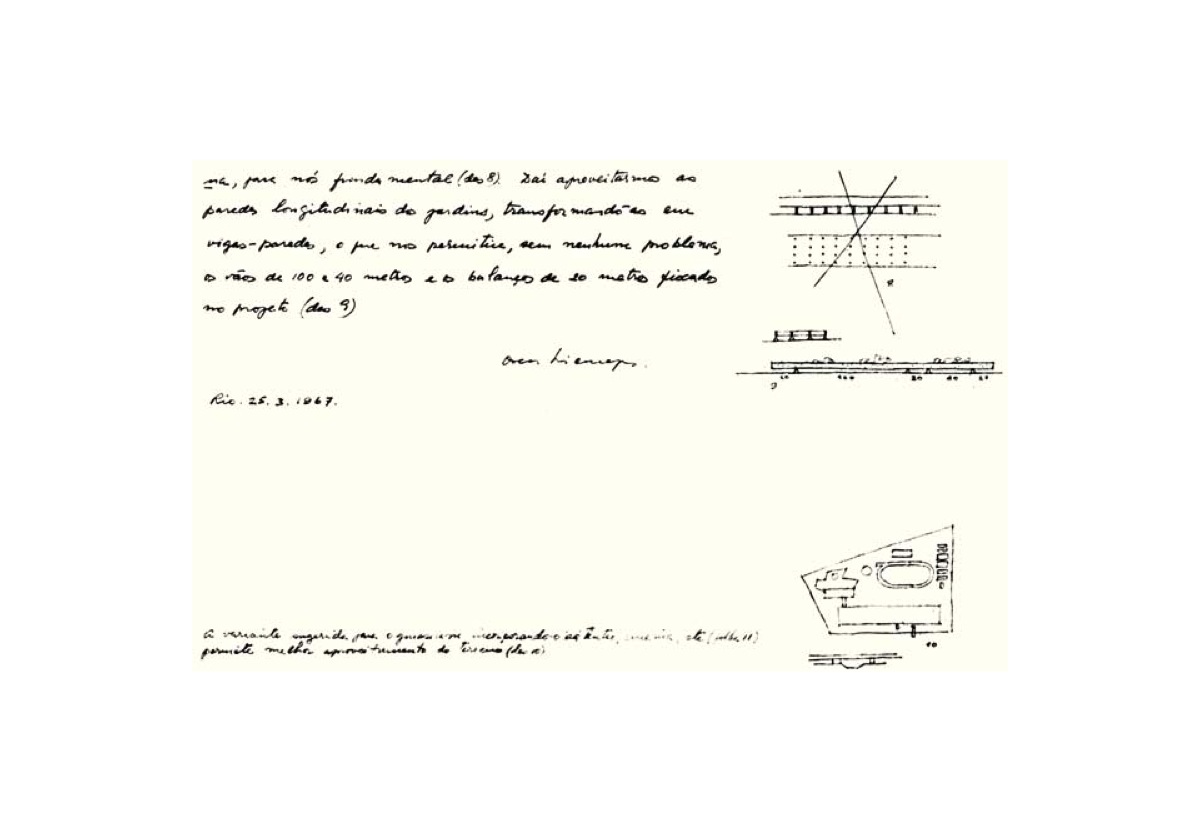 na, para nós fundamental (des 8). Daí aproveitarmos as
paredes longitudinais do jardins, transformando-as em
vigas-paredes, o que nos permitiu, sem nenhum problema,
os vãos de 100 e 40 metros e os balanços de 20 metros fixados
no projeto (des 9)
Oscar Niemeyer.
Rio. 25. 3. 1967.
8
20 100 20 40 20
9
10
A variante sugerida para o incorporando-o ao etc (folha 11)
permite melhor aproveitamento do terreno (des 10)